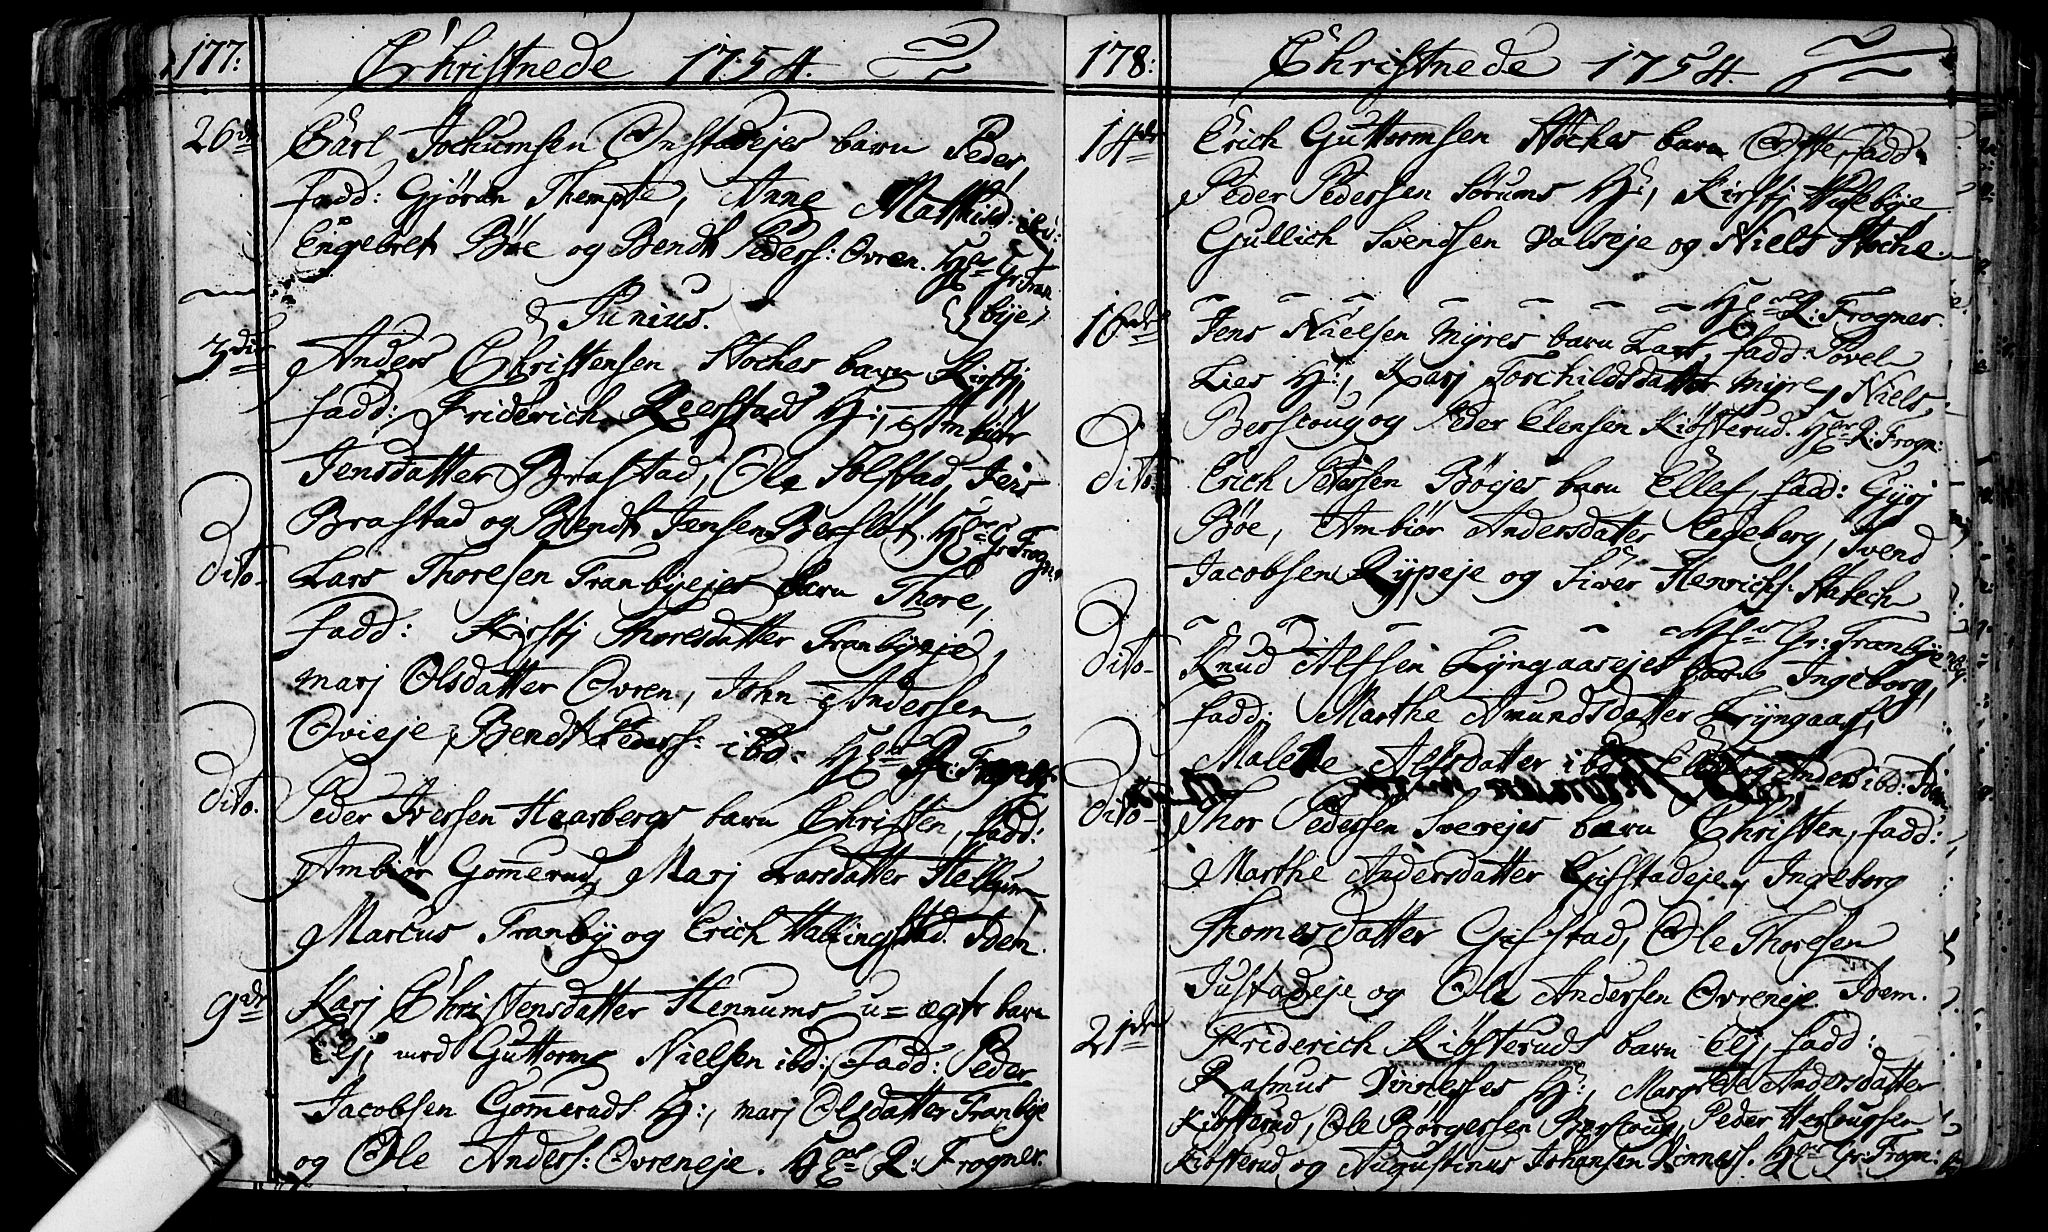 177: Christnede 1754.
26de Carl Jochumsen Onstadejes barn Peder,
fadd: Gjøran Thempte, Anne Mathisd: ibd:
Engebret Bøe og Bendt Peders: Ovren. Gr: Tran
bye
Junius.
3die Anders Christensen Stoches barn Kirstj,
fadd: Friderich Reerstads H:, Ambiør
Jensdatter Brastad, Ole Solstad, Jens
Brastad og Bendt Jensen Berfløt. Gr: Frogn:
Dito- Lars Thoresen Tranbyejes barn Thore,
fadd: Kirstj Thoresdatter Tranbyeje,
marj Olsdatter Ovren, John Andersen
Ovreje, Bendt Peders: ibd. R: Frogner
Dito. Peder Iversen Haarbergs barn Christen, fadd:
Ambiør Gomerud, Marj Larsdatter Hellum
Marcus Tranby og Erich Hallingstad. Idem.
9de Karj Christensdatter Hennums u=ægte barn
Elj, med Guttorm Nielsen ibd:, Fadd: Peder
Jacobsen Gomeruds H:, marj Olsdatter Tranbye
og Ole Anders: Ovreneje. R: Frogner.
178: Christnede 1754.
14de Erich Guttormsen Stoches barn fadd:
Peder Pedersen Sørums H:, Kirstj Husebye
Gullich Svendsen Valseje og Niels Stoche.
R: Frogner.
16de Jens Nielsen Myres barn Lars, fadd: Povel
Lies H:, Karj Torchildsdatter Myre, Niels
Berscoug og Peder Elensen Kiøsterud. R: Frogn:
Dito Erich Petersen Bøejes barn Ellef, fadd: Gyrj
Bøe, Ambiør Andersdatter Egeberg, Svend
Jacobsen Rypeje og Siver Henrichs: Stabech
Gr: Tranbye
Dito- Knud Alfsen Lyngaasejes barn Ingeborg,
fadd: Marthe Amundsdatter Lyngaas,
Malene Alfsdatter ibd, og Anders ibd: Idem
Dito- Thor Pedersen Sverejes barn Christen, fadd:
Marthe Andersdatter Gifstadeje, Ingeborg
Thomesdatter Gifstad, Ole Thoresen
Justadeje og Ole Andersen Ovreneje. Idem.
21de Friderich Kiøsteruds barn Elj, fadd:
Rasmus Vinnesses H:, Margreta Andersdatter
Kiøsterud, Ole Børgersen Berscoug, Peder
Kiøsterud og Augustinus Johansen Vinness. Gr: Frogn: